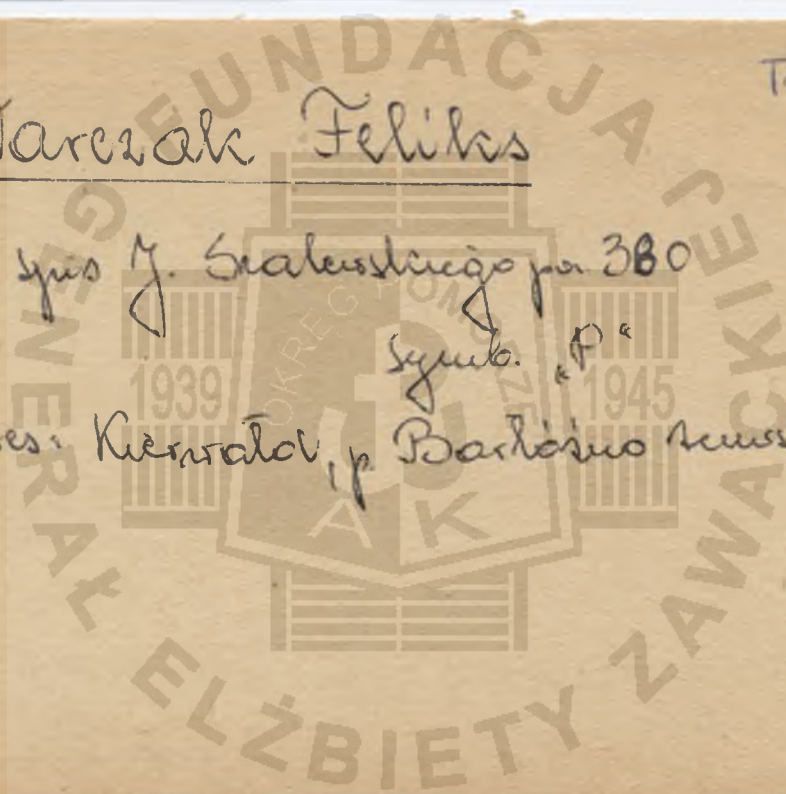 T
Warczak Feliks
spis J. Szalewskiego poz. 380
symb. „P"
Kierwałd, p. Barłożno
FUNDACJA GENERAŁ ELŻBIETY ZAWACKIEJ
OKRĘG POMORZE
1939 1945
AK